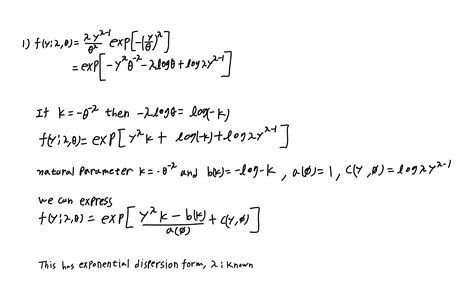 1) f(y;λ,θ) = λy^{λ-1}/θ^λ exp[-(y/θ)^λ]
= exp[-y^λθ^{-λ} - λlogθ + logλy^{λ-1}]
If k = -θ^{-λ} then -λlogθ = log(-k)
f(y;λ,θ) = exp[y^λk + log(-k) + logλy^{λ-1}]
natural parameter k = -θ^{-λ} and b(k) = -log-k, a(φ) = 1, c(y,φ) = logλy^{λ-1}
we can express
f(y;λ,θ) = exp[(y^λk - b(k))/a(φ) + c(y,φ)]
This has exponential dispersion form, λ: known